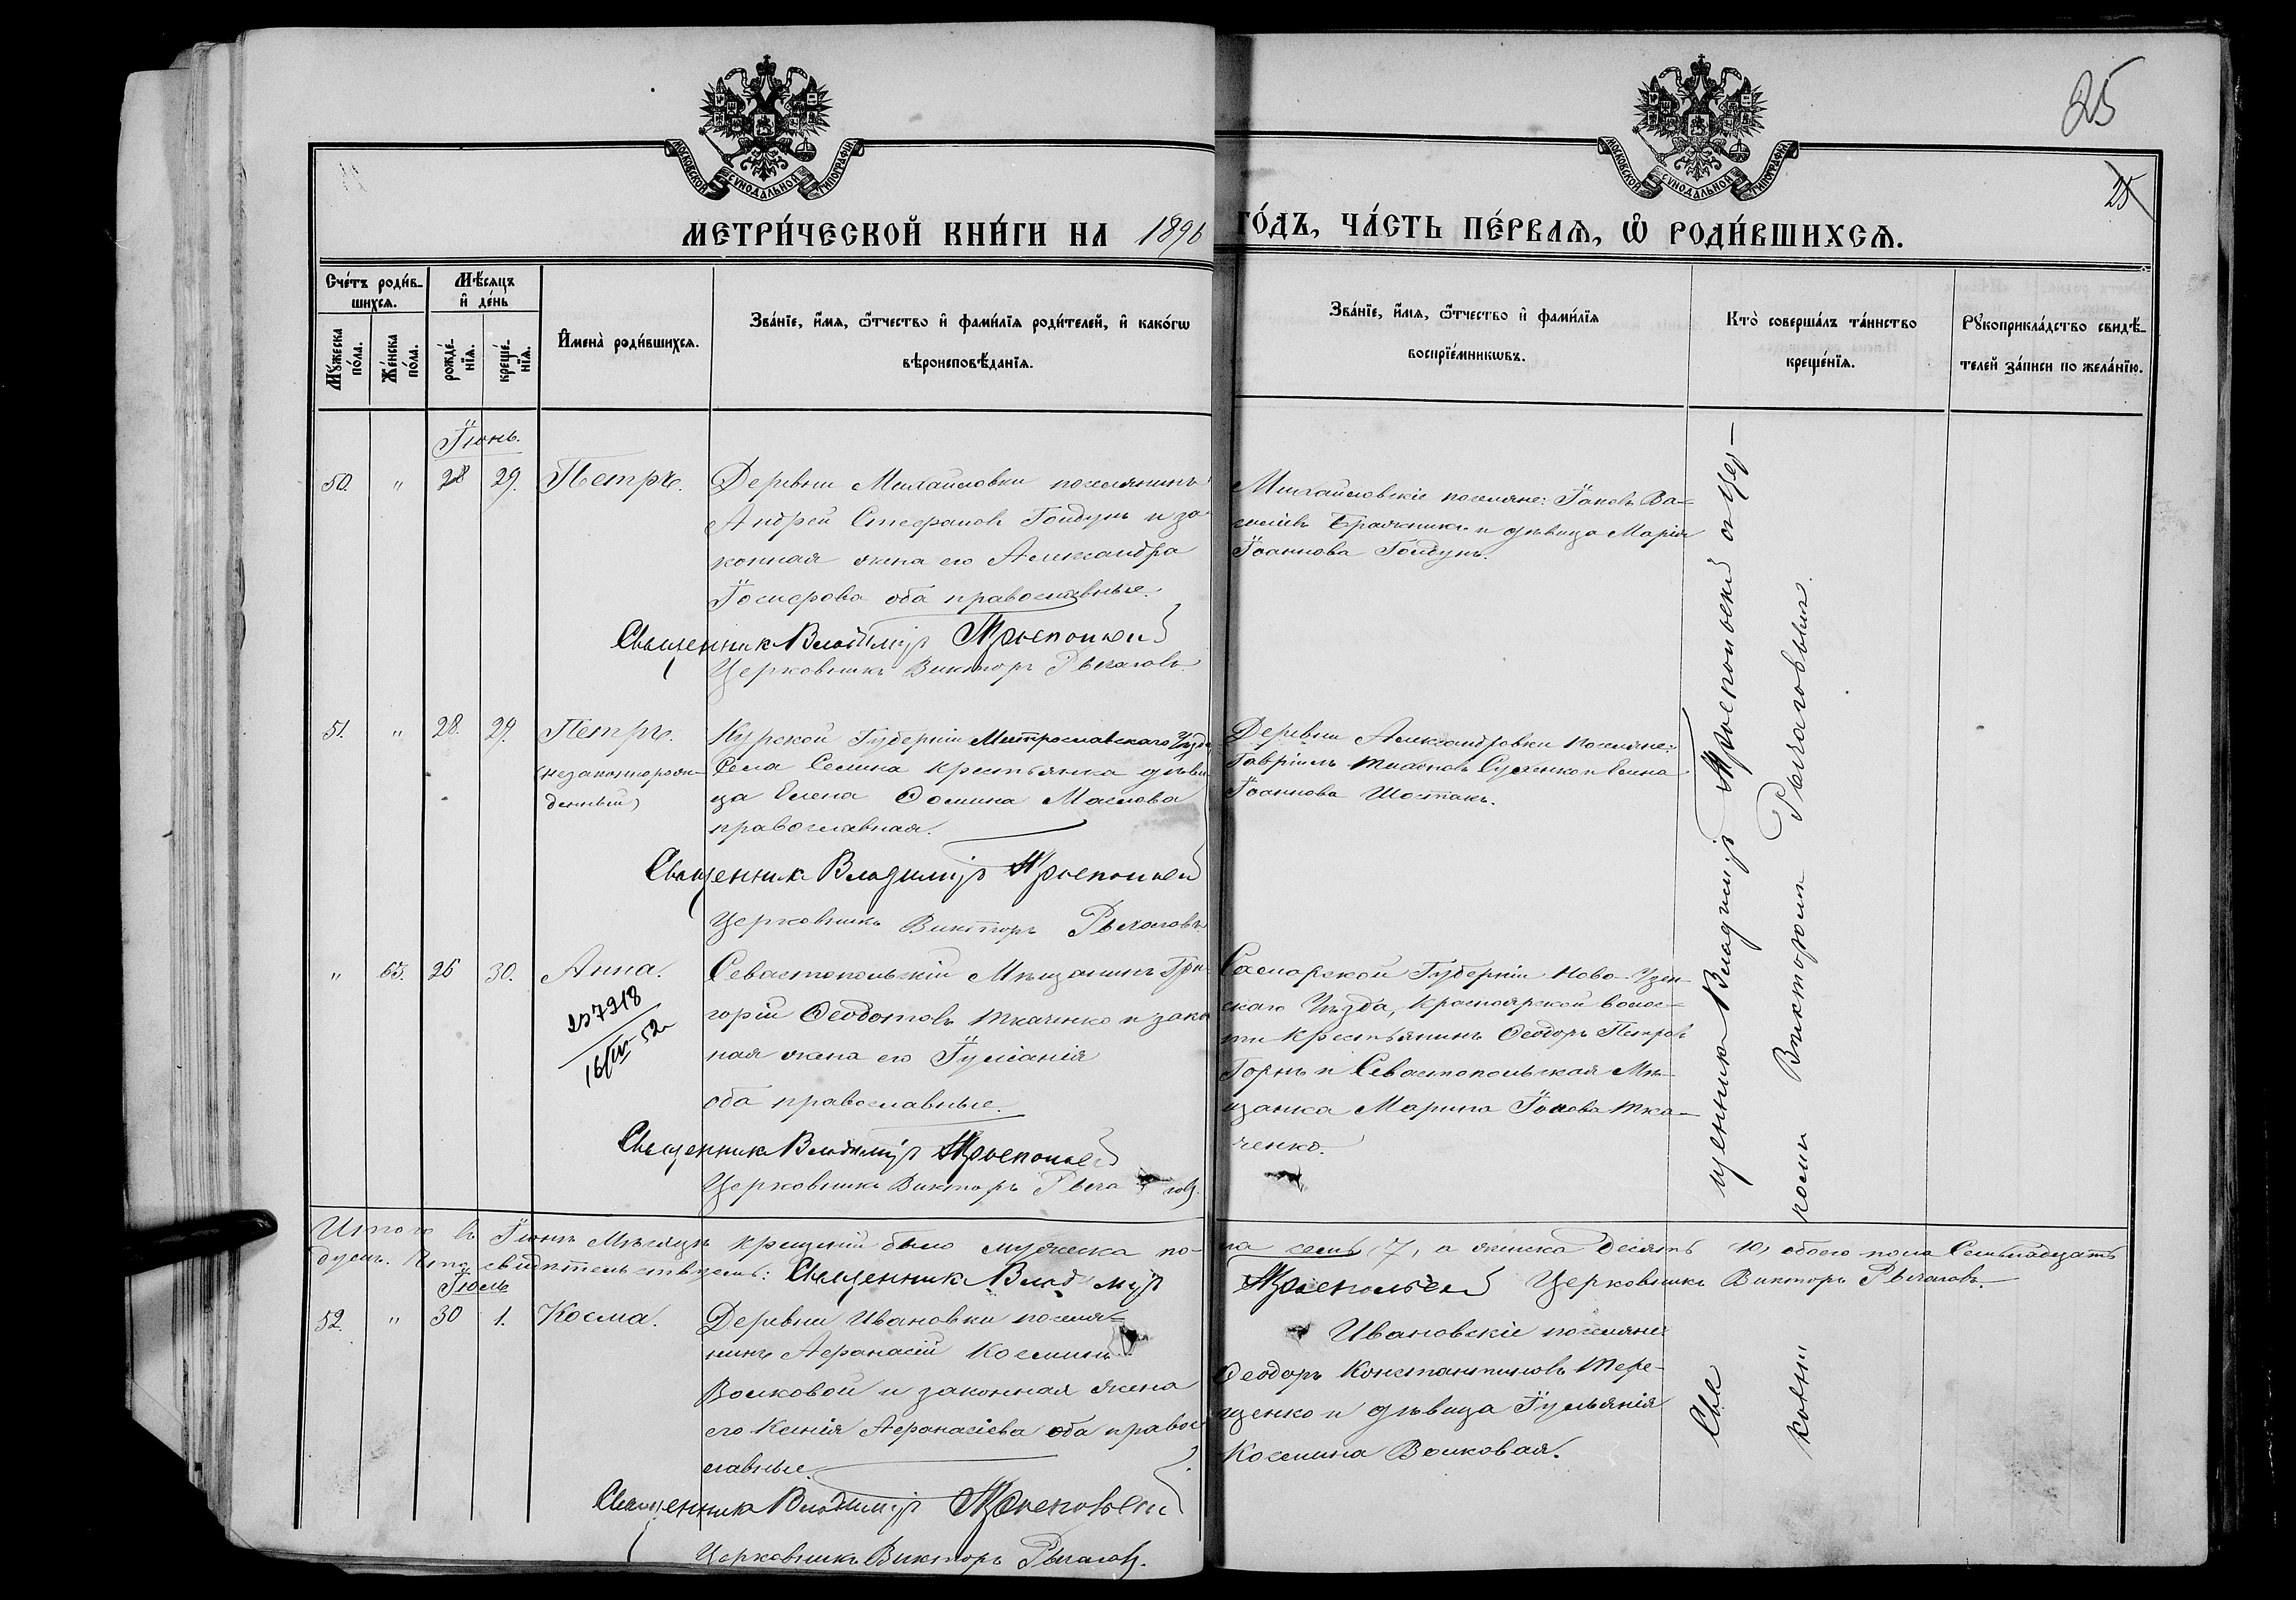 25
25
МОСКОВСКОЙ СѴНОДАЛЬНОЙ ТИПОГРАФІИ
МОСКОВСКОЙ СѴНОДАЛЬНОЙ ТИПОГРАФІИ
МЕТРИ́ЧЕСКОЙ КНИ́ГИ НА 1896 ГО́ДЪ, ЧА́СТЬ ПЕ́РВАѦ, Ѡ҆ РОДИ́ВШИХСѦ.
Сче́тъ роди́в-
шихсѧ.
Мꙋ́жеска
по́ла.
Же́нска
по́ла.
Мѣ́сѧцъ
и҆ де́нь
рожде́-
нїѧ.
креще́-
нїѧ.
И҆мена̀ роди́вшихсѧ.
Зва́нїе, и҆́мѧ, ѻ҆́тчество и҆ фами́лїѧ роди́телей, и҆ како́гѡ
вѣроисповѣ́данїѧ.
Зва́нїе, и҆́мѧ, ѻ҆́тчество и҆ фами́лїѧ
воспрїе́мникѡвъ.
Кто̀ соверша́лъ та́инство
креще́нїѧ.
Рꙋкоприкла́дство свидѣ́-
телей за́писи по жела́нїю.
Іюнь.
50. " 28 29. Петръ.
Деревни Михайловки поселянинъ
Андрей Стефановъ Гойдунъ и за-
конная жена его Александра
оба православные.
Священникъ Владиміръ
Церковникъ Викторъ Рычаговъ
Михайловскіе поселяне: Іаковъ Ва-
и дѣвица Марія
Іоаннова Гойдунъ.
51. " 28. 29. Петръ.
(незаконнорож-
денный)
Курской Губерніи Уѣзда
Села Селина крестьянка дѣви-
ца Елена Ѳомина Маслова
православная.
Священникъ Владиміръ
Церковникъ Викторъ Рычаговъ
Деревни Александровки поселяне:
Гавріилъ Тихоновъ и Елена
Іоаннова Шостакъ.
" 65. 26 30. Анна.
257218
16/IV 52г
Севастопольскій Мѣщанинъ Гри-
горій Ѳеодотовъ Ткаченко и закон
ная жена его Іуліанія
оба православные.
Священникъ Владиміръ
Церковникъ Викторъ Рычаговъ.
Самарской Губерніи Ново-Узен-
скаго Уѣзда, Красноярской волос-
ти крестьянинъ Ѳеодоръ Петровъ
Горнъ и Севастопольская Мѣ-
щанка Марина Тка-
ченко.
Итого въ Іюнѣ Мѣсяцѣ крещеній было мужеска по-
ла семь (7), а женска десять (10) обоего пола Семьнадцать
душъ. Что свидѣтельствуемъ: Священникъ Владиміръ
Церковникъ Викторъ Рычаговъ.
Іюль
52. " 30 1. Косма.
Деревни Ивановки поселя-
нинъ Аѳанасій Косминъ
Волковой и законная жена
его Ксенія Аѳанасіева оба право-
славные.
Священникъ Владиміръ
Церковникъ Викторъ Рычаговъ.
Ивановскіе поселяне:
Ѳеодоръ Константиновъ Тере-
щенко и дѣвица Іульянія
Космина Волковая.
Священникъ Владиміръ съ цер-
ковникомъ Викторомъ Рычаговымъ.